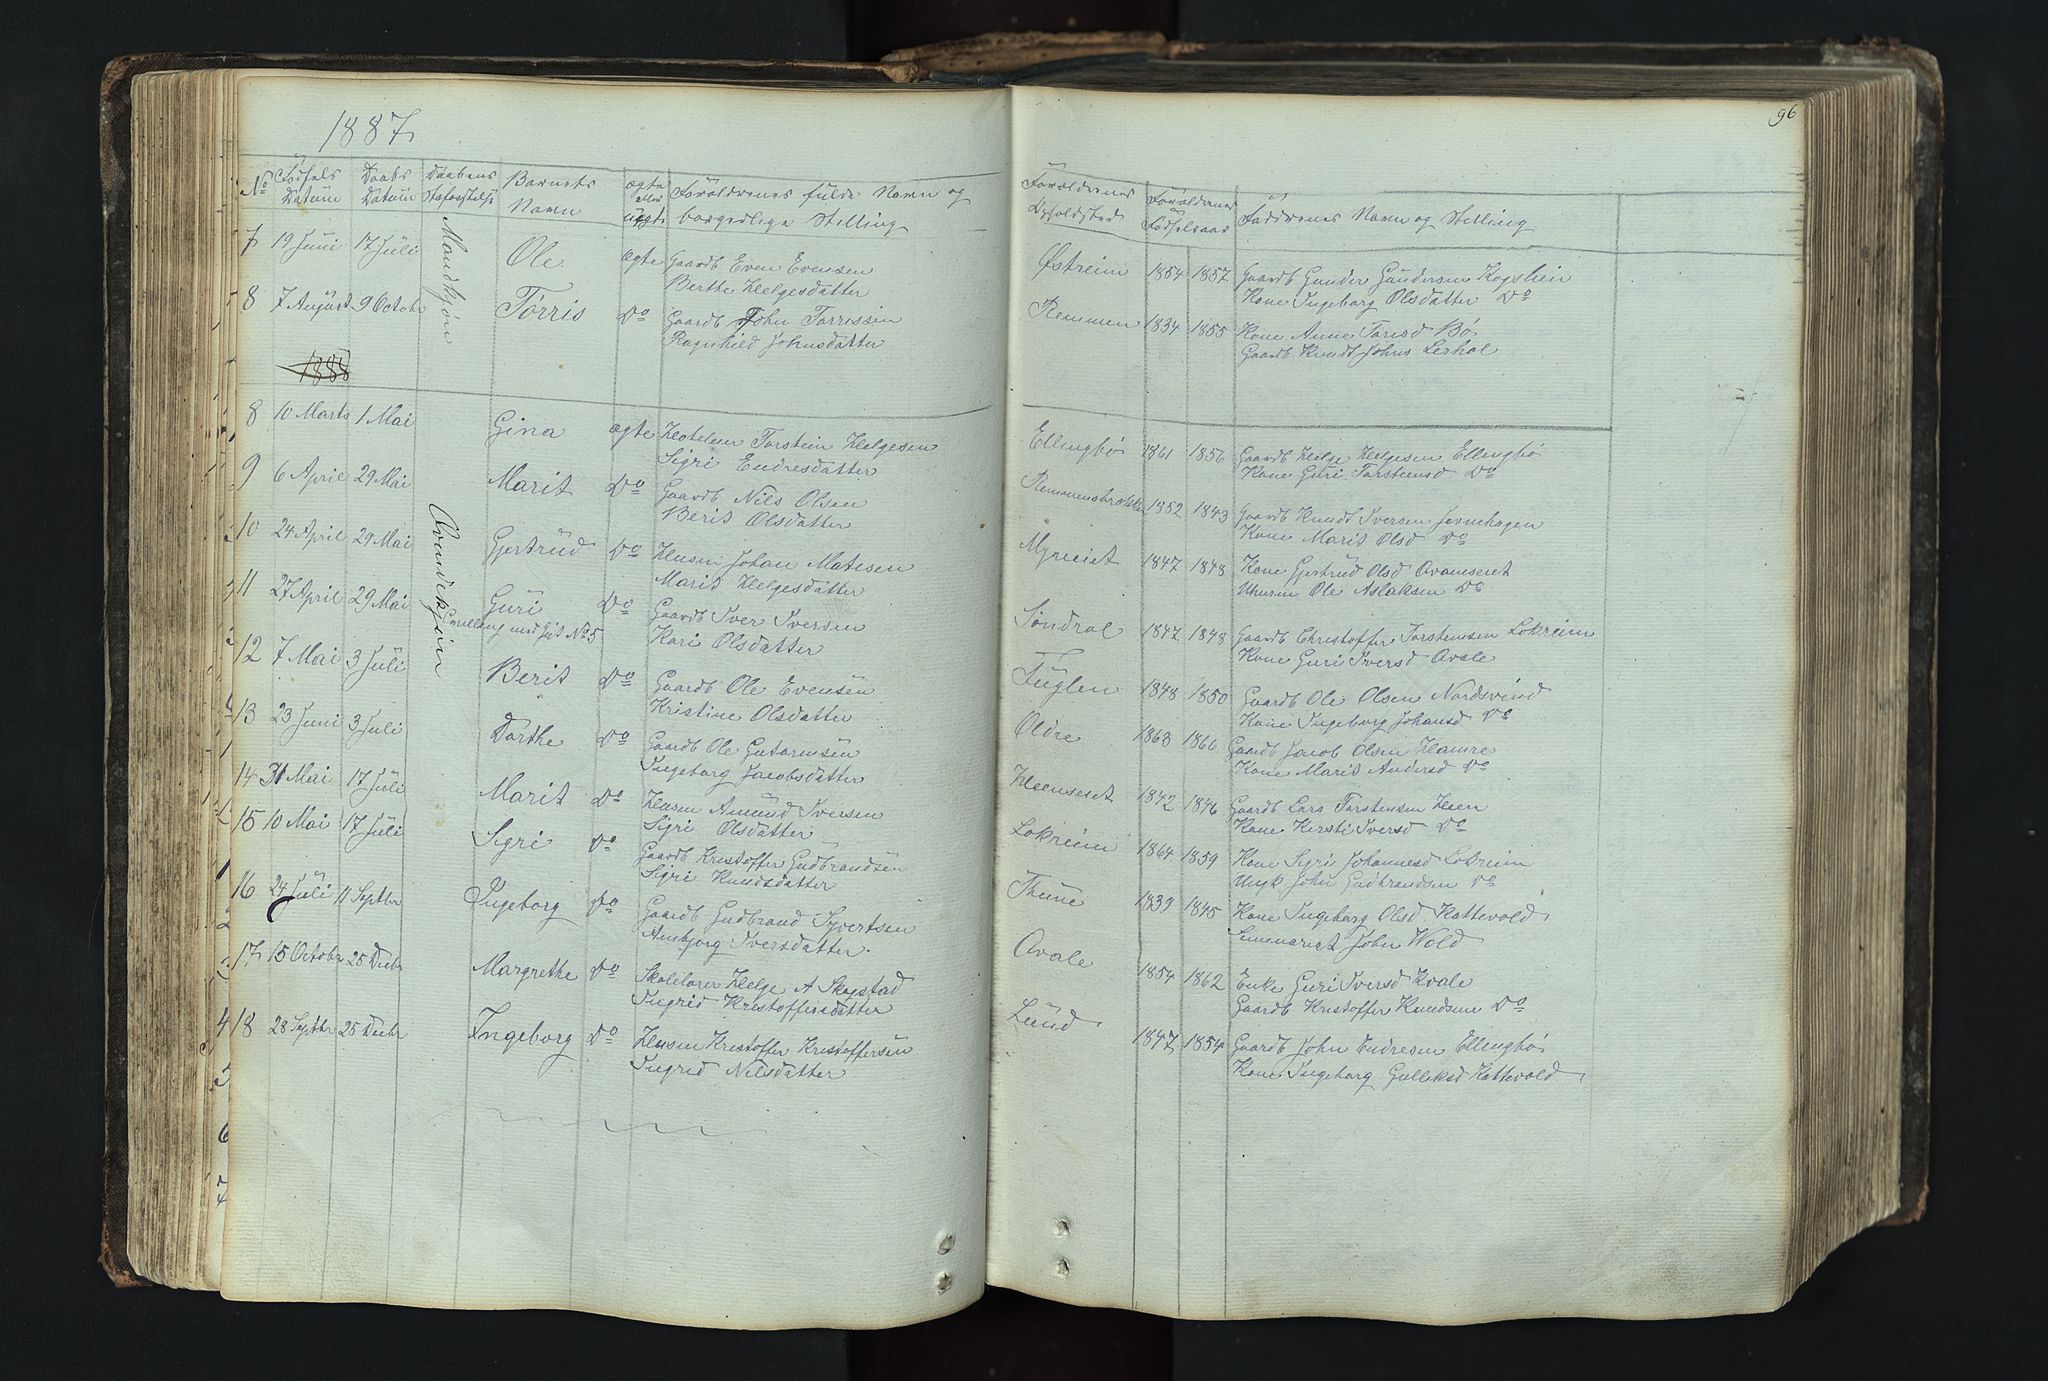 1887
96
No
Fødsels Datum
Daabs Datum
Daabens Stadfæstelse
Barnets Navn
ægte eller uægte
Forældrenes fulde Navn og borgerlige Stilling
Forældrenes Opholdsted
Forældrenes Fødselsaar
Faddrenes Navn og Stilling
Mandkjøn
7 19 Juni 17 Juli Ole ægte Gaardb Even Evensen Østreim 1854 1857 Gaardb Gunder Gundersen
Berthe Helgesdatter Kone Ingeborg Olsdatter Do
8 7 August 9 Octobr Torris Do Gaardb John Torrissen Remmen 1834 1855 Kone Anne Torisd Bø
Ragnhild Johnsdatter Gaardb Knudt Johns
1888
Qvindekjøn
8 10 Marts 1 Mai Gina ægte Torstein Helgesen Ellingbø 1861 1856 Gaardb Helge Helgesen Ellingbø
Sigri Endresdatter Kone Guri Torstensd Do
9 6 April 29 Mai Marit Do Gaardb Nils Olsen 1852 1843 Gaardb Knudt Iversen
Berit Olsdatter Kone Marit Olsd Do
10 24 April 29 Mai Gjertrud Do Husm Johan Matesen 1847 1848 Kone Gjertrud Olsd
Marit Helgesdatter Ole Aslaksen Do
11 27 April 29 Mai Guri Do Gaardb Iver Iversen Søndrol 1847 1848 Gaardb Christoffer Torstensen Lokreim
Tvilling med No 5 Kari Olsdatter Kone Guri Iversd Qvale
12 7 Mai 3 Juli Berit Do Gaardb Ole Evensen Fuglen 1848 1850 Gaardb Ole Olsen
Kristine Olsdatter Kone Ingeborg Johansd Do
13 23 Juni 3 Juli Dorthe Do Gaardb Ole Gutormsen Oldre 1863 1866 Gaardb Jacob Olsen Hamre
Ingeborg Jacobsdatter Kone Marit Andersd Do
14 31 Mai 17 Juli Marit Do Husm Amund Iversen Heenseiet 1842 1846 Gaardb Lars Torstensen Heen
Sigri Olsdatter Kone Kersti Iversd Do
15 10 Mai 17 Juli Sigri Do Gaardb Kristoffer Gudbrandsen Lokreim 1864 1859 Kone Sigri Johannesd Lokreim
Sigri Knudsdatter Ungk John Gudbrandsen Do
16 24 Juli 11 Septbr Ingeborg Do Gaardb Gudbrand Syvertsen Thune 1839 1845 Kone Ingeborg Olsd Kattevold
Ambjorg Iversdatter Seminarist John Wold
17 15 Octobr 25 Decbr Margrethe Do Skolelærer Helge A Skogstad Qvale 1854 1862 Enke Guri Iversd Kvale
Ingrid Kristoffersdatter Gaardb Kristoffer Knudsen Do
18 28 Septbr 25 Decbr Ingeborg Do Husm Kristoffer Kristoffersen Lund 1847 1854 Gaardb John Endresen Ellingbø
Ingrid Nilsdatter Kone Ingeborg Gulleksd Kattevold